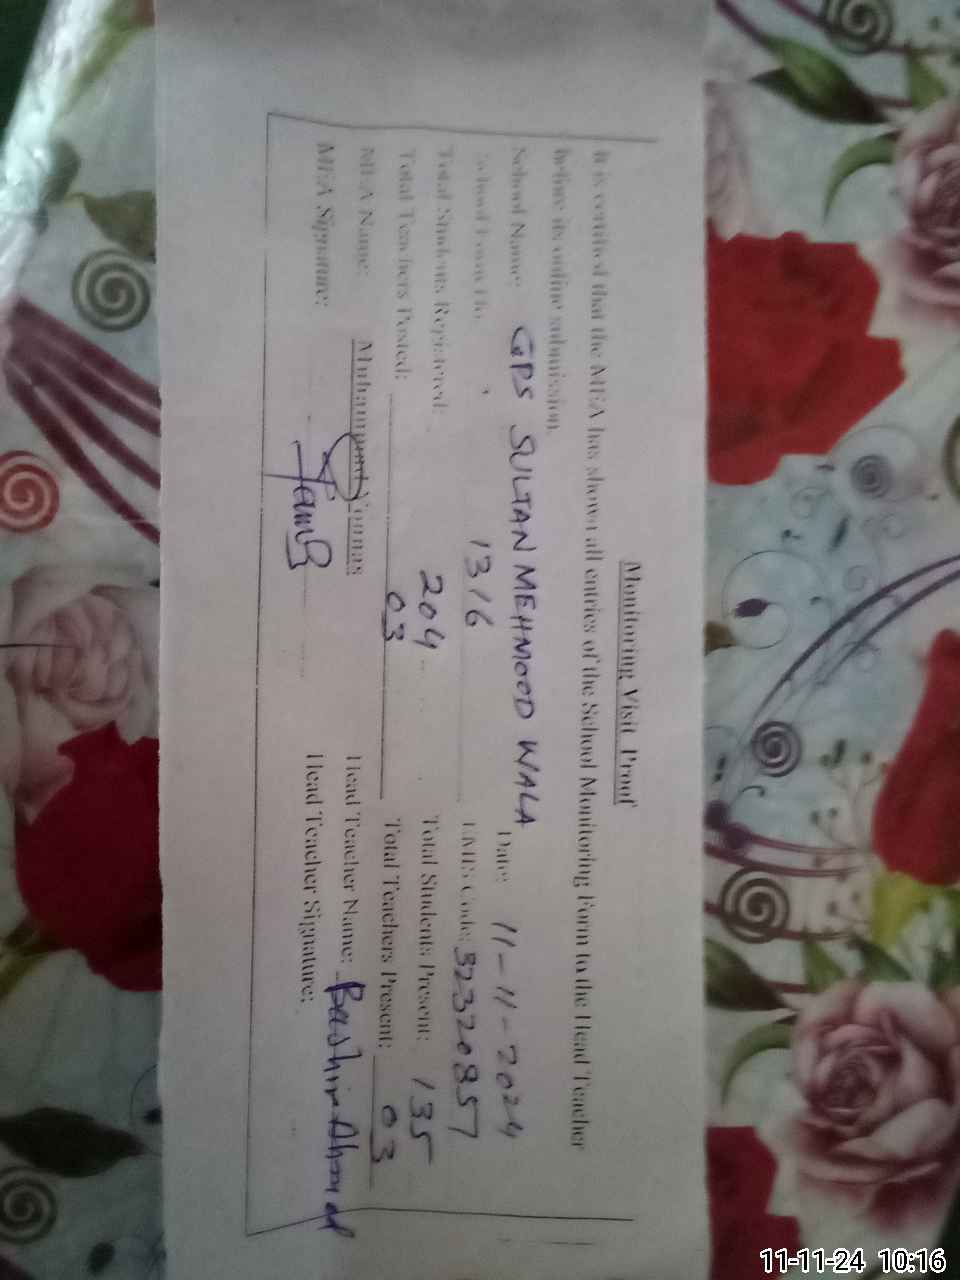 Monitoring Visit Proof
It is certified that the MEA has shown all entries of the School Monitoring Form to the Head Teacher
before its online submission.
School Name: GPS SULTAN MEHMOOD WALA Date: 11-11-2024
School Form No. 1316 EMIS Code: 32320857
Total Students Registered: 204 Total Students Present: 135
Total Teachers Posted: 03 Total Teachers Present: 03
MEA Name: Muhammad Younas Head Teacher Name: Bashir Ahmad
MEA Signature: Head Teacher Signature:
11-11-24 10:16